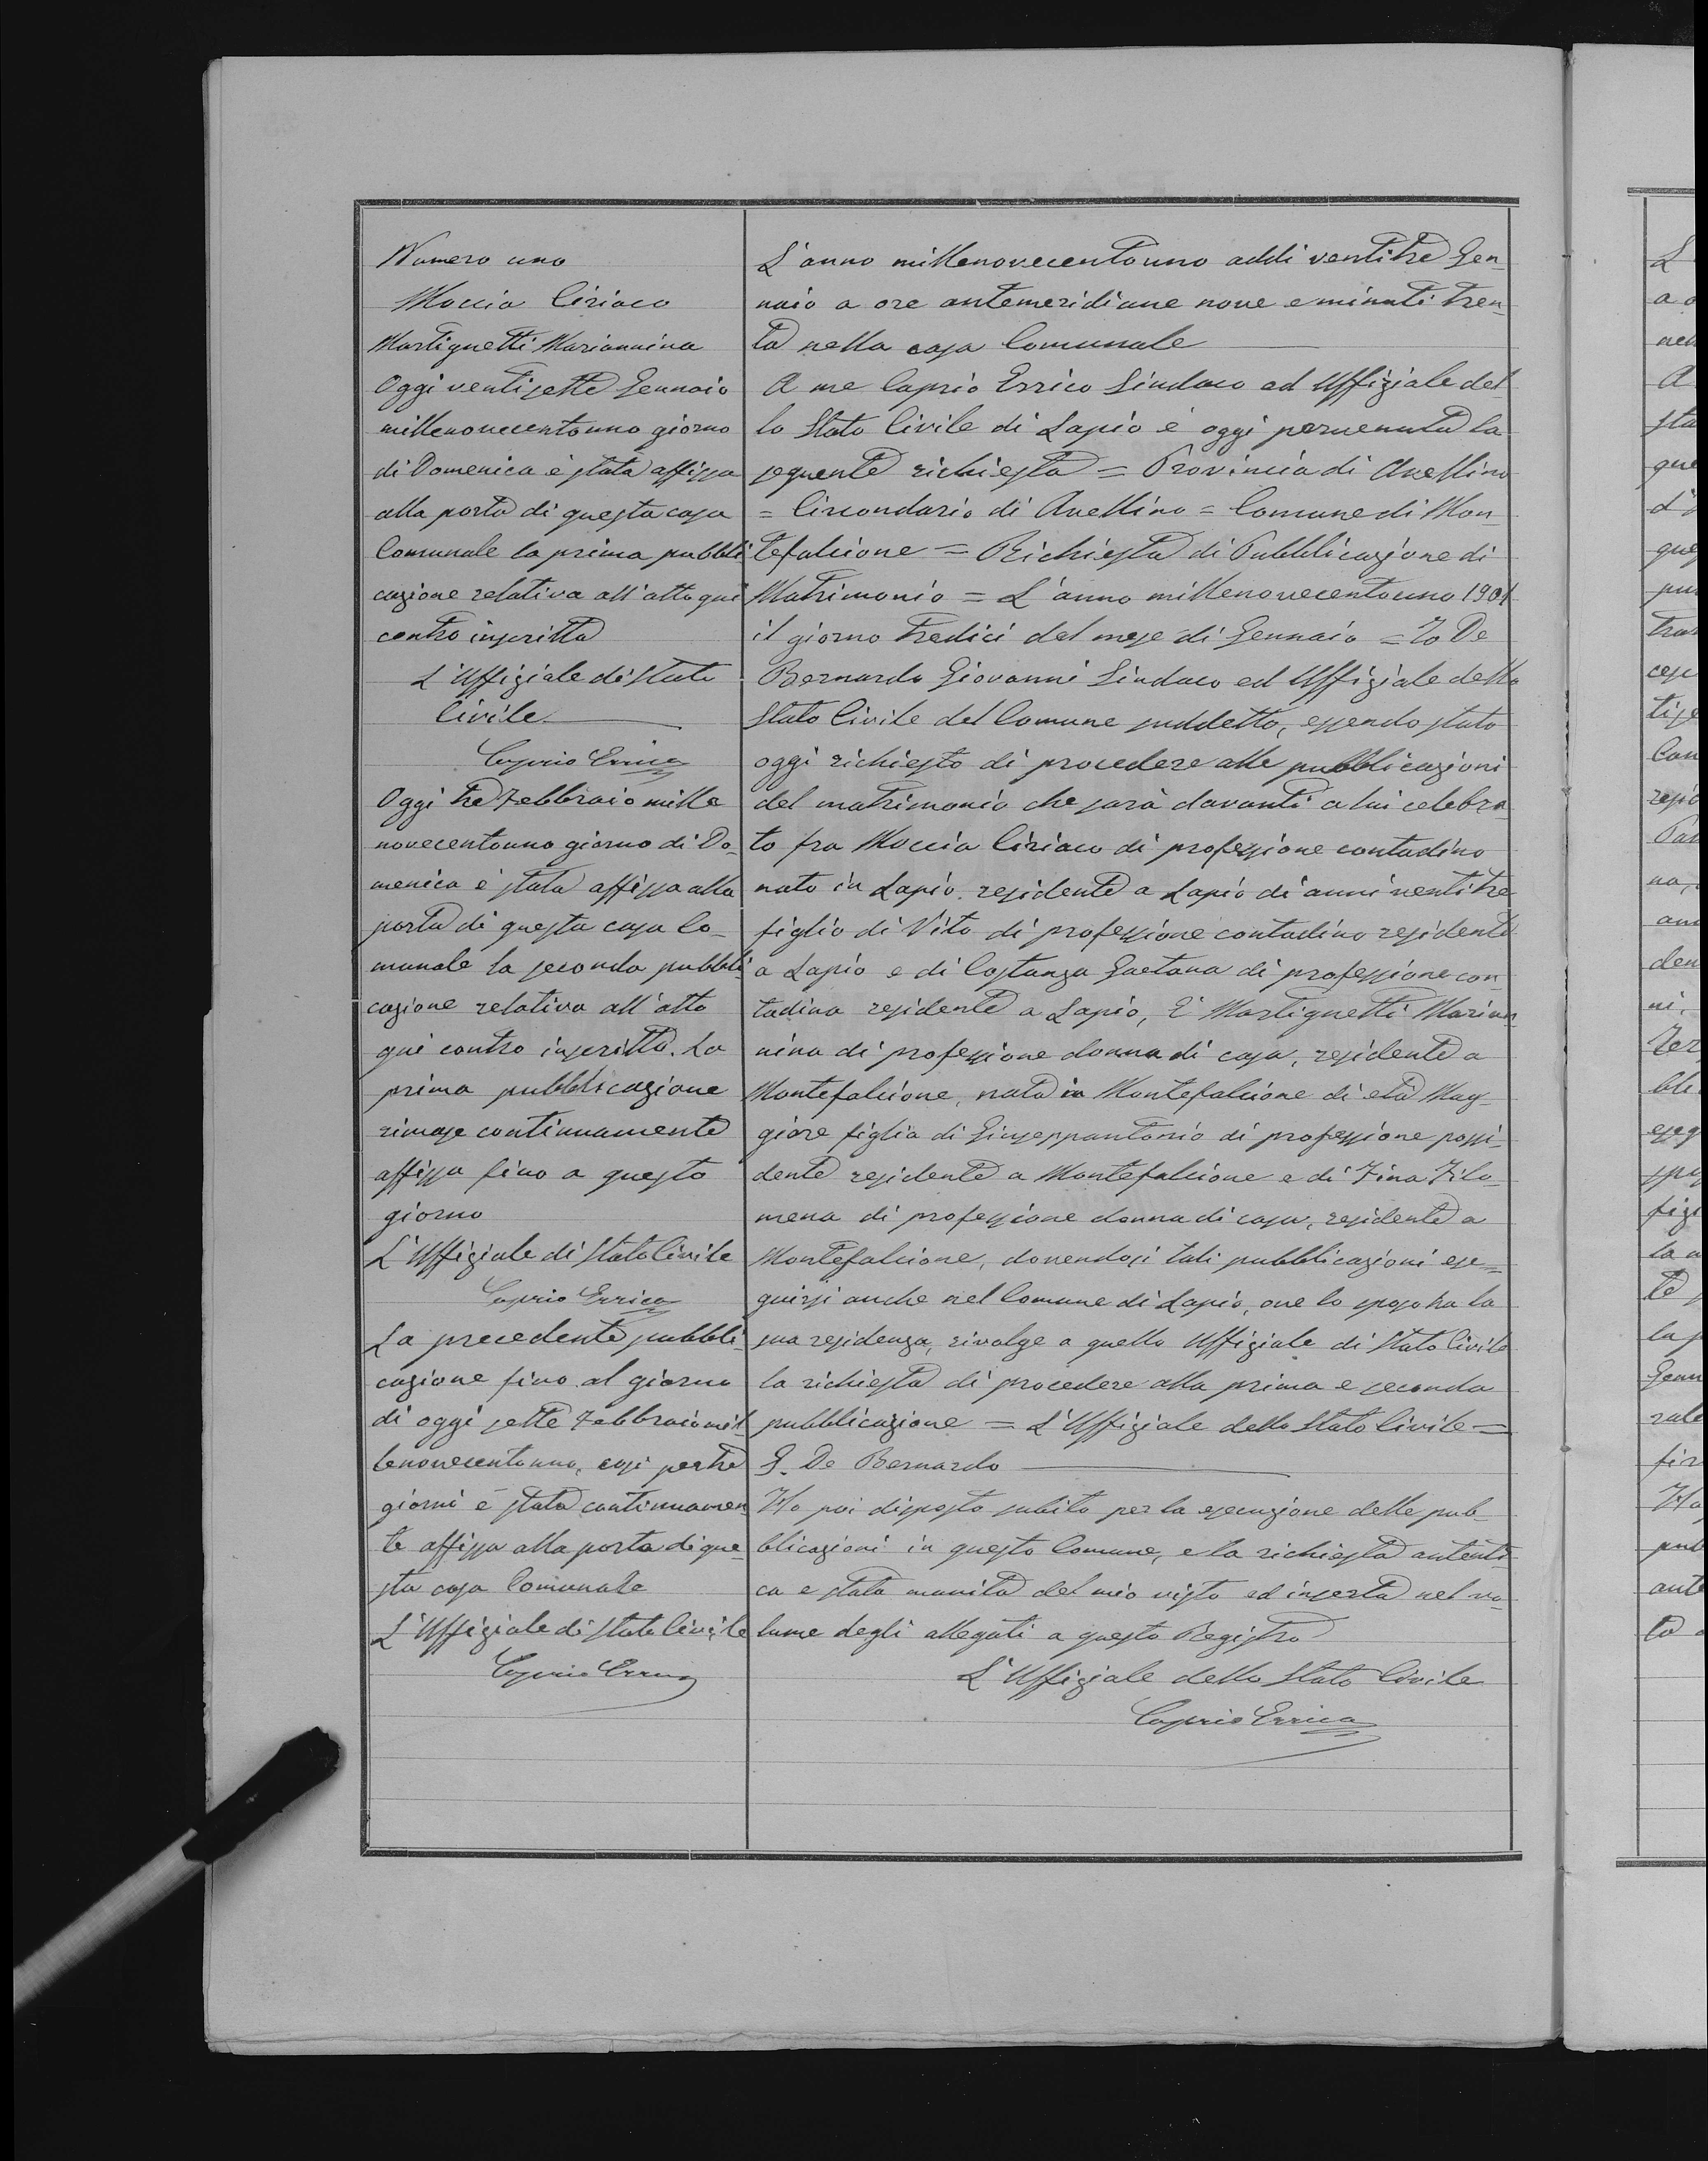 Numero uno
Moccia Ciriaco
Martignetti Mariannina
Oggi ventisette Gennaio
millenovecentouno giorno
di Domenica è stata affissa
alla porta di questa casa
Comunale la prima pubbli
cazione relativa all'atto qui
contro inscritto
L'Uffiziale di Stato
Civile
Caprio Errico
Oggi tre Febbraio mille
novecentouno giorno di Do-
menica è stata affissa alla
porta di questa casa Co-
munale la seconda pubbli
cazione relativa all'atto
qui contro inscritto. La
prima pubblicazione
rimase continuamente
affissa fino a questo
giorno
L'Uffiziale di Stato Civile
Caprio Errico
La precedente pubbli
cazione fino al giorno
di oggi sette Febbraio mil-
lenovecentouno, cosi per tre
giorni è stata continuamen
te affissa alla porta di que-
sta casa Comunale
L'Uffiziale di Stato Civile
Caprio Errico
L'anno millenovecentouno addi ventitre Gen-
naio a ore antemeridiane nove e minuti tren-
ta nella casa Comunale
A me Caprio Errico Sindaco ed Uffiziale del-
lo Stato Civile di Lapio è oggi pervenuta la
seguente richiesta = Provincia di Avellino
= Circondario di Avellino = Comune di Mon
tefalcione = Richiesta di Pubblicazione di
Matrimonio = L'anno millenovecentouno 1901
il giorno tredici del mese di Gennaio = Io De
Bernardo Giovanni Sindaco ed Uffiziale dello
Stato Civile del Comune suddetto, essendo stato
oggi richiesto di procedere alle pubblicazioni
del matrimonio che sarà davanti a lui celebra-
to fra Moccia Ciriaco di professione contadino
nato in Lapio residente a Lapio di anni ventitre
figlio di Vito di professione contadino residente
a Lapio e di Costanza Gaetana di professione con
tadina residente a Lapio, E Martignetti Marian
nina di professione donna di casa, residente a
Montefalcione, nata in Montefalcione di età Mag-
giore figlia di Giuseppantonio di professione possi-
dente residente a Montefalcione e di Fina Filo-
mena di professione donna di casa, residente a
Montefalcione, dovendosi tali pubblicazioni ese=
guirsi anche nel Comune di Lapio, ove lo sposo ha la
sua residenza, rivolge a quello Uffiziale di Stato Civile
la richiesta di procedere alla prima e seconda
pubblicazione = L'Uffiziale dello Stato Civile =
G. De Bernardo
Ho poi disposto subito per la esecuzione delle pub-
blicazioni in questo Comune, e la richiesta autenti-
ca e stata munita del mio visto ed inserta nel vo-
lume degli allegati a questo Registro
L'Uffiziale dello Stato Civile
Caprio Errico